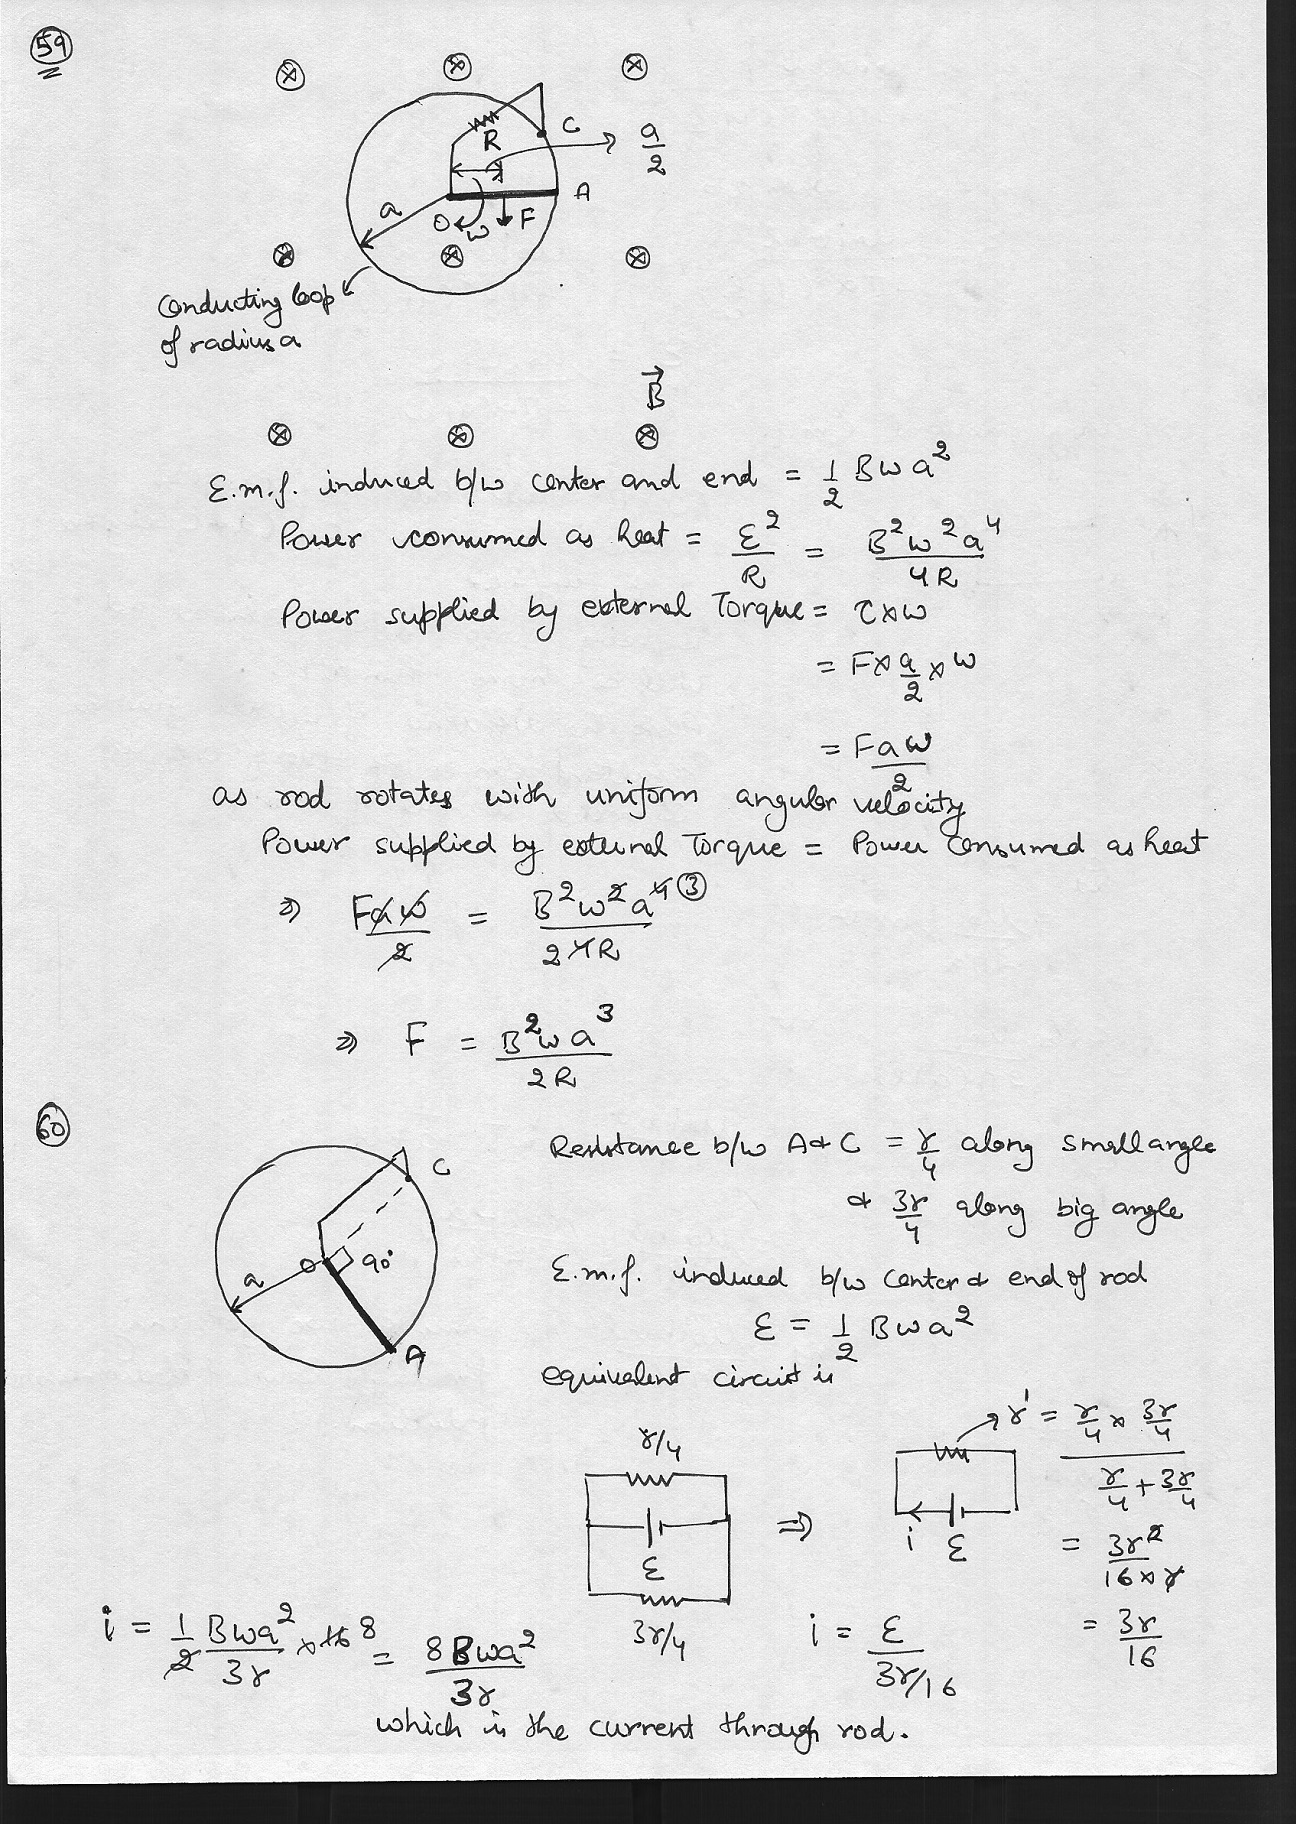 59
C
R
a/2
A
a
O
ω
F
Conducting loop
of radius a
B⃗
E.m.f. induced b/w center and end = 1/2 Bωa²
Power consumed as heat = ε²/R = B²ω²a⁴/4R
Power supplied by external Torque = τ×ω
= F× a/2 × ω
= Faω/2
as rod rotates with uniform angular velocity
Power supplied by external Torque = Power consumed as heat
⇒ Faω/2 = B²ω²a⁴ ③/2 4R
⇒ F = B²ωa³/2R
60
C
O
90°
a
A
Resistance b/w A & C = r/4 along small angle
& 3r/4 along big angle
E.m.f. induced b/w center & end of rod
ε = 1/2 Bωa²
equivalent circuit is
r/4
ε
3r/4
⇒
i
ε
r' = r/4 × 3r/4 / r/4 + 3r/4
= 3r²/16×r
= 3r/16
i = ε/3r/16
i = 1/2 Bωa²/3r × 16 8 = 8Bωa²/3r
which is the current through rod.